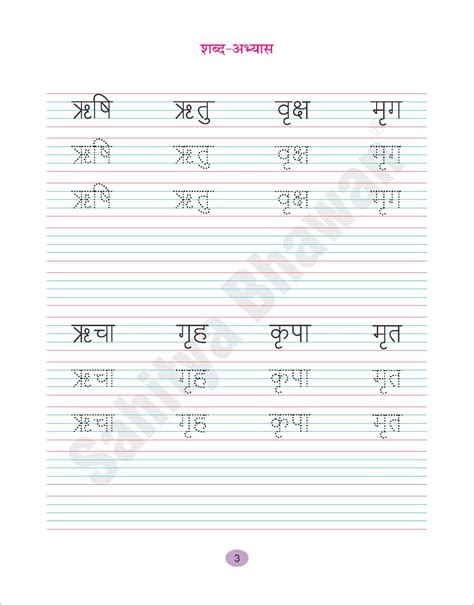 शब्द-अभ्यास
ऋषि ऋतु वृक्ष मृग
ऋषि ऋतु वृक्ष मृग
ऋषि ऋतु वृक्ष मृग
ऋचा गृह कृपा मृत
ऋचा गृह कृपा मृत
ऋचा गृह कृपा मृत
Sahitya Bhawan®
3